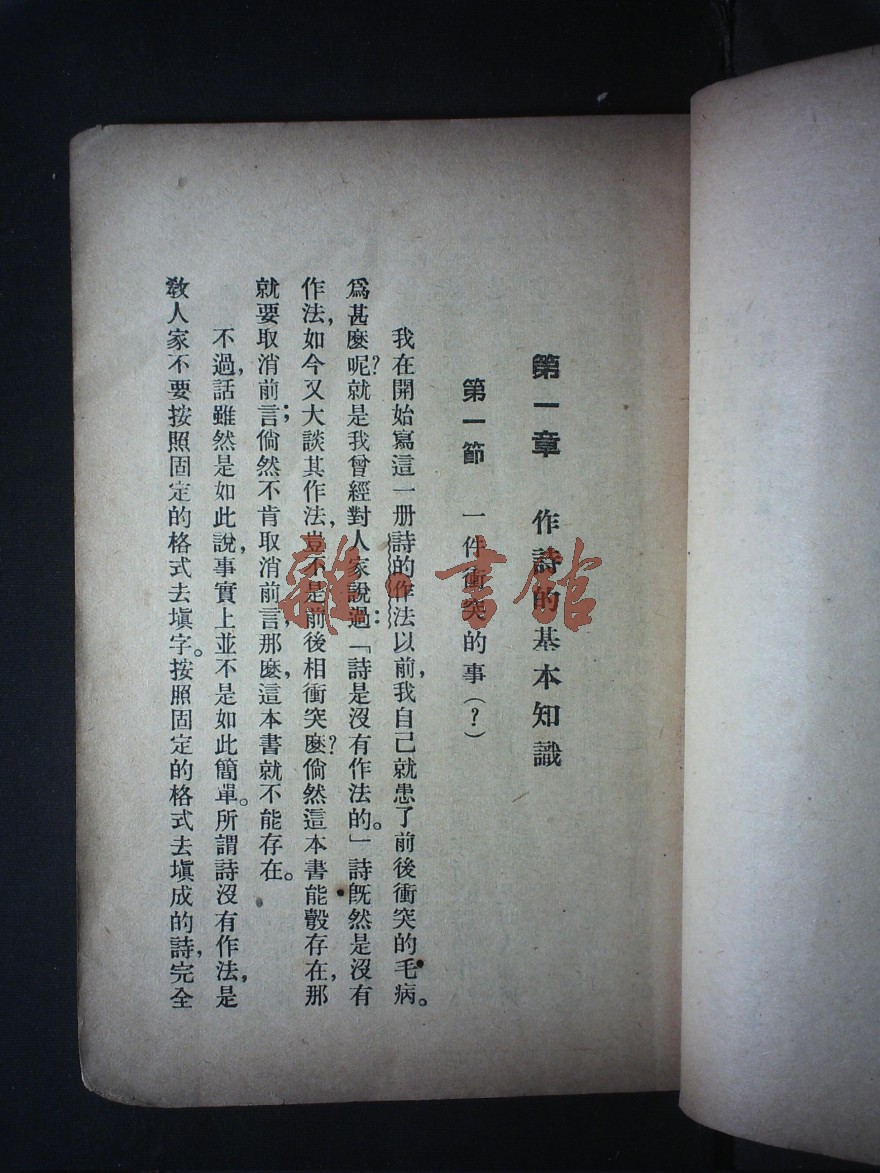 第一章　作詩的基本知識
第一節　一件衝突的事(?)
我在開始寫這一册詩的作法以前,我自己就患了前後衝突的毛病。
爲甚麽呢?就是我曾經對人家說過:「詩是沒有作法的。」詩旣然是沒有
作法,如今又大談其作法,豈不是前後相衝突麽?倘然這本書能彀存在,那
就要取消前言;倘然不肯取消前言,那麽,這本書就不能存在。
不過,話雖然是如此說,事實上並不是如此簡單。所謂詩沒有作法,是
敎人家不要按照固定的格式去塡字。按照固定的格式去塡成的詩,完全
雜·書館